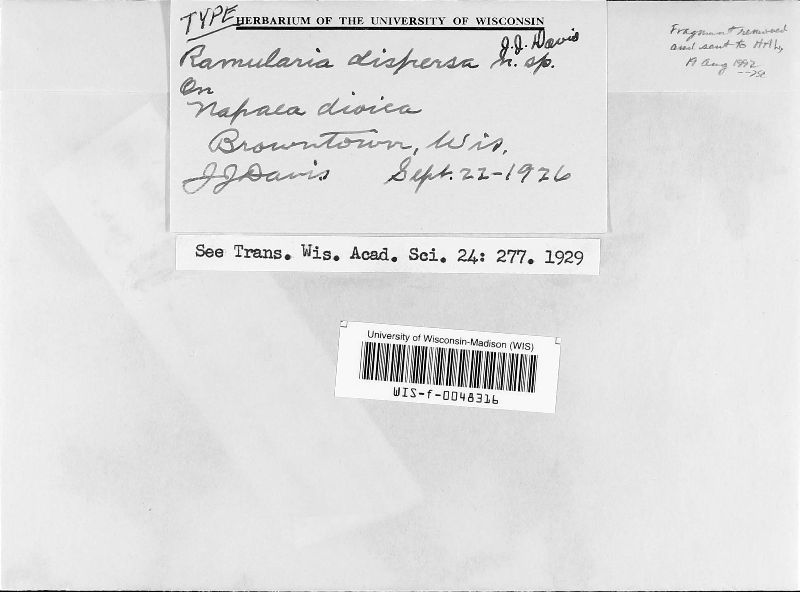 TYPE
HERBARIUM OF THE UNIVERSITY OF WISCONSIN
J.J. Davis
Ramularia dispersa n. sp.
On
Napaea dioica
Browntown, Wis.
JJDavis Sept. 22-1926
Fragment removed
and sent to HAL,
19 Aug 1992
See Trans. Wis. Acad. Sci. 24: 277. 1929
University of Wisconsin-Madison (WIS)
WIS-f-0048316